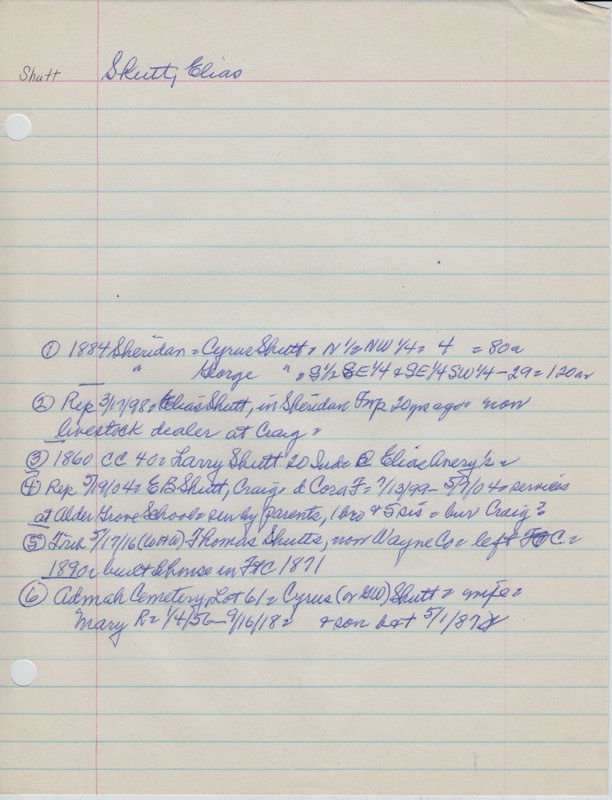 Shutt Shutt, Elias
① 1884 Sheridan = Cyrus Shutt = N ½ NW ¼ = 4 = 80a
" George " = S½ SE ¼ & SE ¼ SW ¼ - 29 = 120a
② Rep 3/17/98 = Elias Shutt, in Sheridan Twp 20 yrs ago = now
livestock dealer at Craig =
③ 1860 CC 40 = Larry Shutt 20 Ind = @ Elias Avery's =
④ Rep 5/19/04 = E B Shutt, Craig = d Cora F = 7/13/99 - 5/7/04 = services
at Alder Grove School = surv by parents, 1 bro & 5 sis = bur Craig?
⑤ 5/17/16 Thomas Shutts, now Wayne Co = left FtC =
1890 = built house in FtC 1871
⑥ Admah Cemetery, Lot 61 = Cyrus (or GW) Shutt = wife =
Mary R = 1/4/56 - 9/16/18 = & son b&t 5/1/87